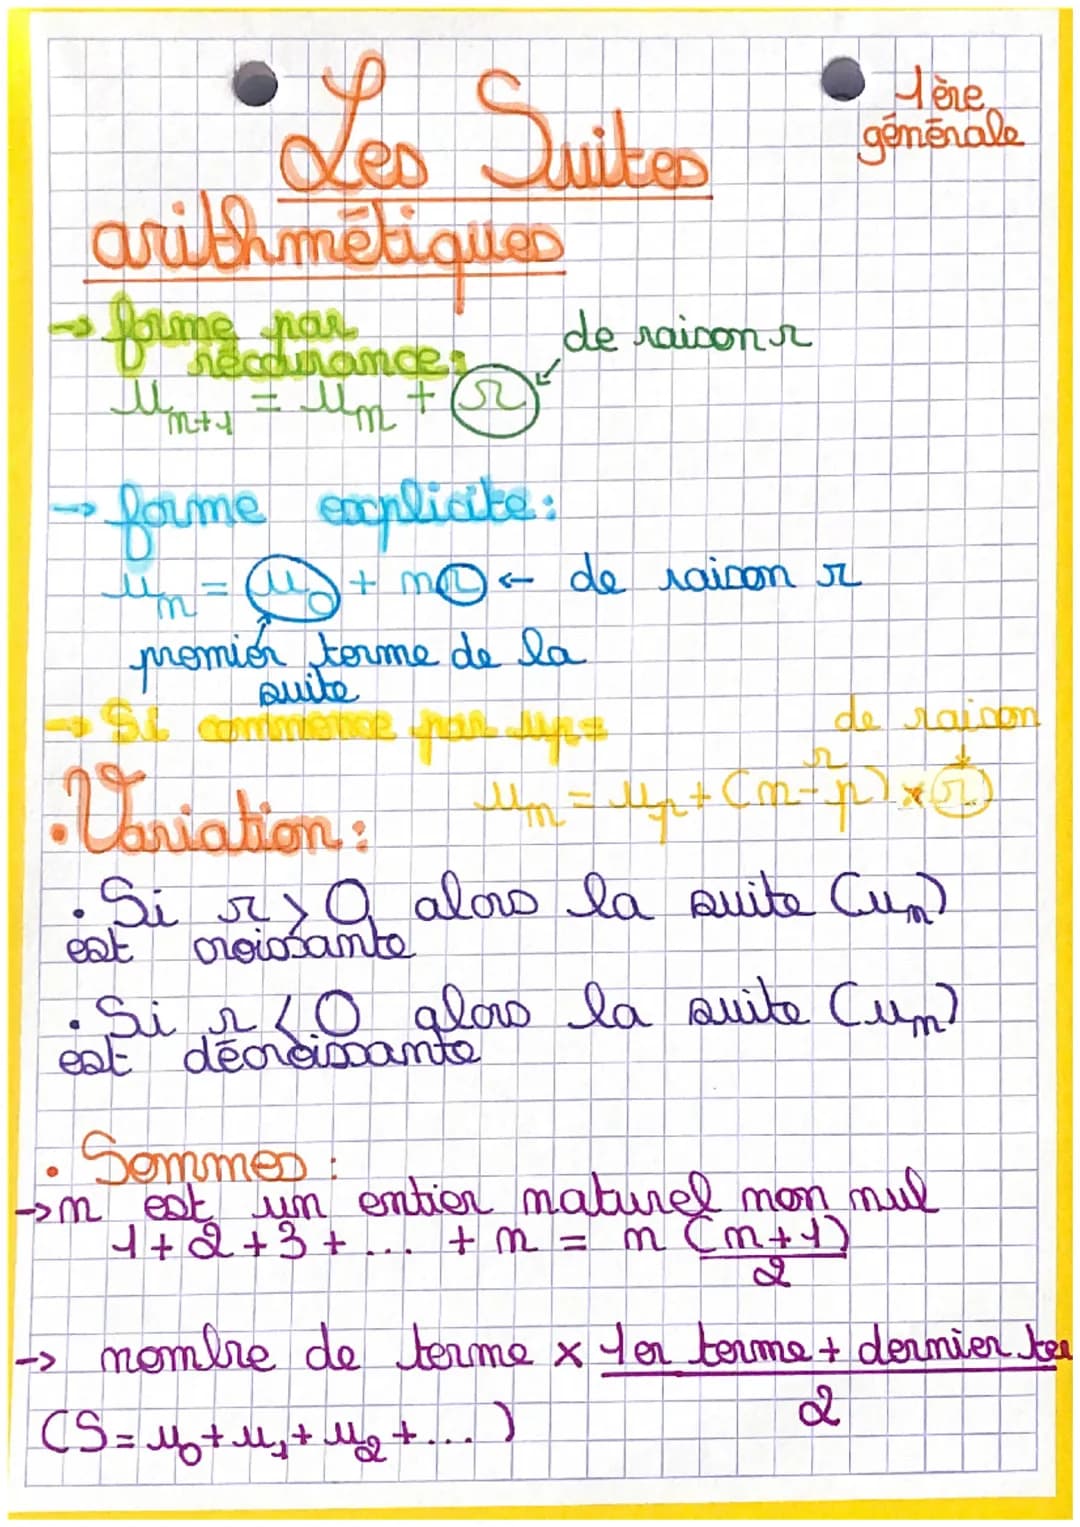 Les Suites
1ère
générale
arithmétiques
→ forme par
récurrence:
de raison r
u_{n+1} = u_n + r
→ forme explicite:
u_n = u_0 + nr ← de raison r
premier terme de la
suite
→ Si commence par up=
de raison
r
u_n = u_p + (n-p) × r
• Variation:
• Si r > 0 alors la suite (u_n)
est croissante
• Si r < 0 alors la suite (u_n)
est décroissante
• Sommes:
→ n est un entier naturel non nul
1+2+3+... + n = n (n+1)
2
→ nombre de terme × 1er terme + dernier ter
2
(S = u_0 + u_1 + u_2 + ...)